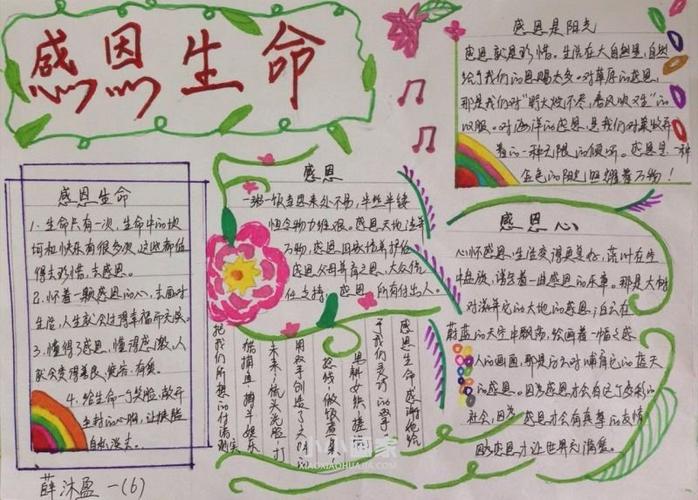 感恩生命
感恩生命
1. 生命只有一次,生命中的坎
坷和快乐有很多次,这些都值
得去珍惜,去感恩。
2. 怀着一颗感恩的心,去面对
生活,人生就会过得幸福而充实。
3. 懂得了感恩,懂得感激,人
就会变得善良、
4. 给生命一个笑脸,敞开
尘封的心胸,让
自然
感恩
一粥一饭当思来处不易,半丝半缕
恒念物力维艰。感恩天地滋养
万物,感恩国家培养护佑
感恩父母养育之恩,大众
感恩所有付出人。
感恩生命感谢他给
予我们灵巧的双手
用双手创造了大
未来,梳头洗脸打
把我们所想的付诸
感恩是阳光
感恩就是珍惜。生活在大自然里,自然
给予我们的恩赐太多。对草原的感恩,
那是我们对“野火烧不尽,春风吹又生”的
叹服。对海洋的感恩,是我们对
着的一种无限的倾听。感恩是一种
金色的阳光照耀着万物!
感恩心
心怀感恩,生活变得更美好,
中盛放,谱写着一曲感恩的乐章。那是大树
对滋养它的大地的感恩;白云在
蔚蓝的天空中飘荡,绘画着一幅幅感
人的画面,那是白云对哺育它的蓝天
的感恩。因为感恩才会有这个多彩的
社会,因为感恩才会有真挚的友情
因为感恩才让世界
小小画家
XIAOXIAOHUAJIA.COM
薛沐盈 一(6)